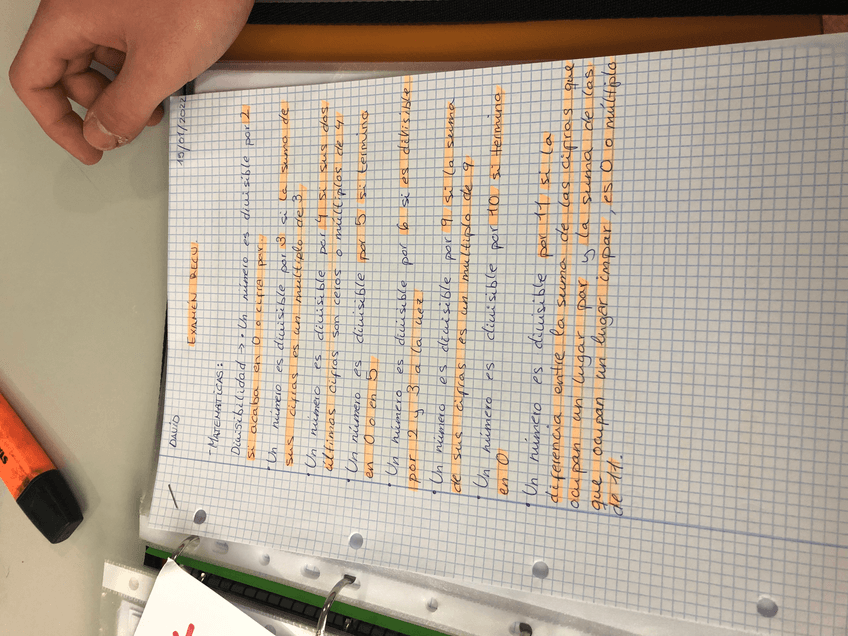 DAVID
15/01/2022
EXAMEN RECU.
- MATEMÁTICAS:
Divisibilidad → • Un número es divisible por 2
si acaba en 0 o cifra par.
• Un número es divisible por 3 si la suma de
sus cifras es un múltiplo de 3.
• Un número es divisible por 4 si sus dos
últimas cifras son ceros o múltiplos de 4.
• Un número es divisible por 5 si termina
en 0 o en 5.
• Un número es divisible por 6 si es divisible
por 2 y 3 a la vez
• Un número es divisible por 9 si la suma
de sus cifras es un múltiplo de 9.
• Un número es divisible por 10 si termina
en 0
• Un número es divisible por 11 si la
diferencia entre la suma de las cifras que
ocupan un lugar par y la suma de las
que ocupan un lugar impar, es 0 o múltiplo
de 11.